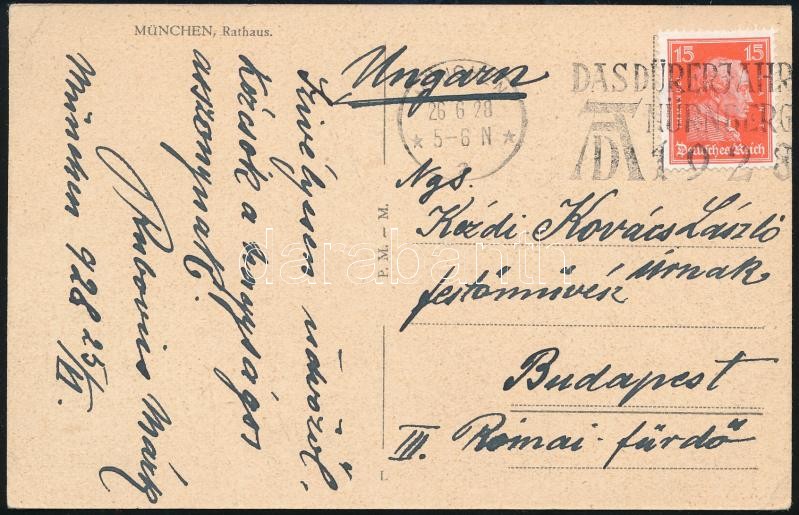 MÜNCHEN, Rathaus.
Szivélyesen üdvözöl.
Kézcsók a Nagyságos
asszonynak.
Rubovics Márk
München 928 25/VI.
P. M. – M.
L
Ungarn
26 6 28
* 5-6 N *
DAS DÜRERJAHR
NÜRNBERG
AD 1928
15 15
Deutsches Reich
Ngs.
Kézdi Kovács László
úrnak
festőművész
Budapest
III. Római-fürdő
darabanth